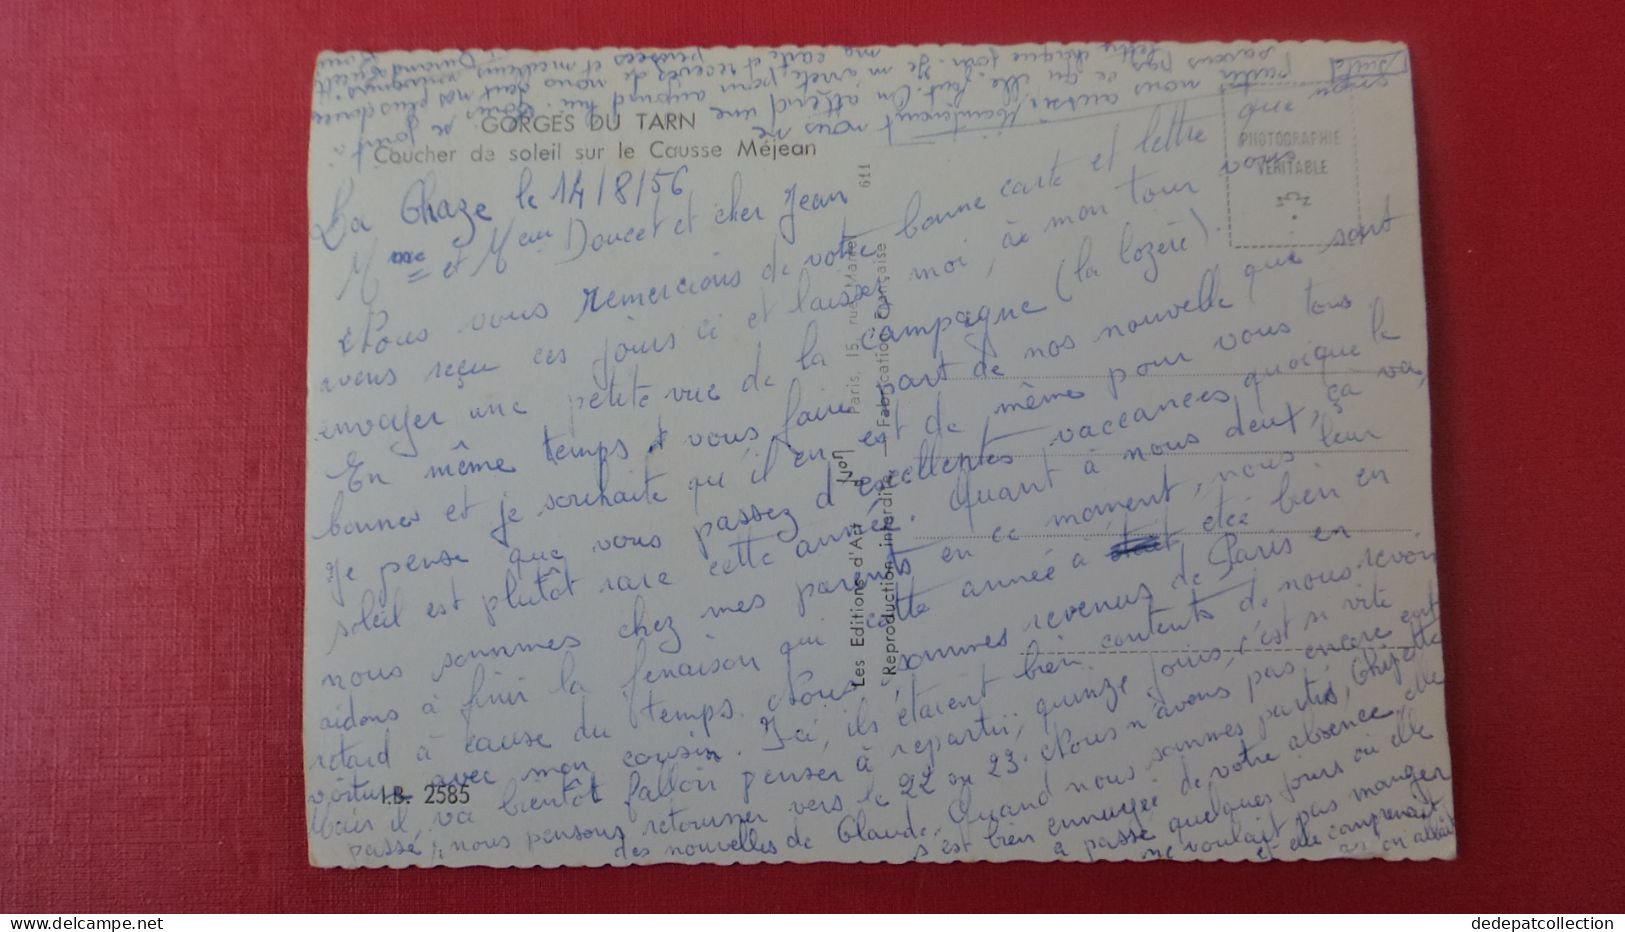 GORGES DU TARN
Coucher de soleil sur le Causse Méjean
PHOTOGRAPHIE
VÉRITABLE
La Chaze le 14/8/56
Mme et Mr Doucet et cher Jean
Nous vous remercions de votre bonne carte et lettre que nous
avons reçu ces jours ci et laissez moi, à mon tour vous
envoyer une petite vue de la campagne (la lozère).
En même temps vous faire part de nos nouvelle que sont
bonnes et je souhaite qu'il en est de même pour vous tous
Je pense que vous passez d'excellentes vaccances quoique le
soleil est plutôt rare cette année. Quant à nous deux, ça va,
nous sommes chez mes parents en ce moment, nous leur
aidons à finir la fenaison qui cette année à etée bien en
retard à cause du temps. Nous sommes revenus de Paris en
voiture avec mon cousin. Ici, ils étaient bien contents de nous revoir
Mais il va bientôt falloir penser à repartir, quinze jours, c'est si vite
passé, nous pensons retourner vers le 22 ou 23. Nous n'avons pas encore eut
des nouvelles de Claude. Quand nous sommes partis, Chipette
s'est bien ennuyée de votre absence, elle
a passé quelques jours où elle
ne voulait pas manger
et elle comprenait
qu'on allait
(suite)
partir nous aussi. Maintenant nous ne
savons pas ce qu'elle fait. On attend une
lettre chaque jour. Je m'arrête pour aujourd'hui.
ma carte et recevez de nous deux nos plus
pensées et meilleurs souvenirs.
Les Editions d'Art Yvon Paris, 15, rue Martel 611
Reproduction interdite — Fabrication Française
I.B. 2585
dedepatcollection